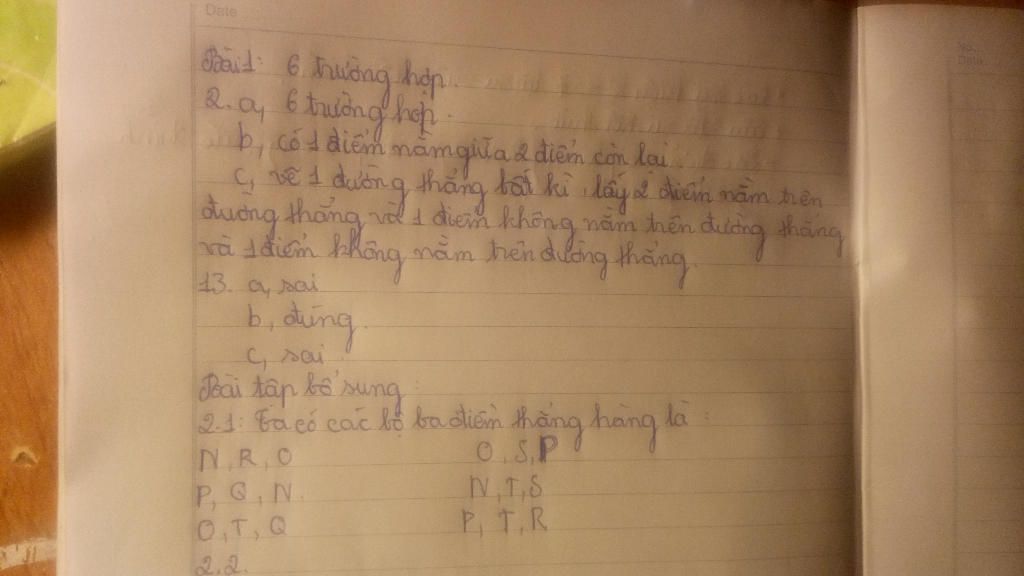 Date
Bài 1: 6 trường hợp.
2. a, 6 trường hợp.
b, có 1 điểm nằm giữa 2 điểm còn lại
c, vẽ 1 đường thẳng bất kì, lấy 2 điểm nằm trên
đương thẳng và 1 điểm không nằm trên đường thẳng
và 1 điểm không nằm trên đường thẳng.
13. a, sai
b, đúng.
c, sai.
Bài tập bổ sung:
2.1: Ta có các bộ ba điểm thẳng hàng là:
N, R, O O, S, P
P, Q, N. N, T, S
O, T, Q P, T, R
2.2.